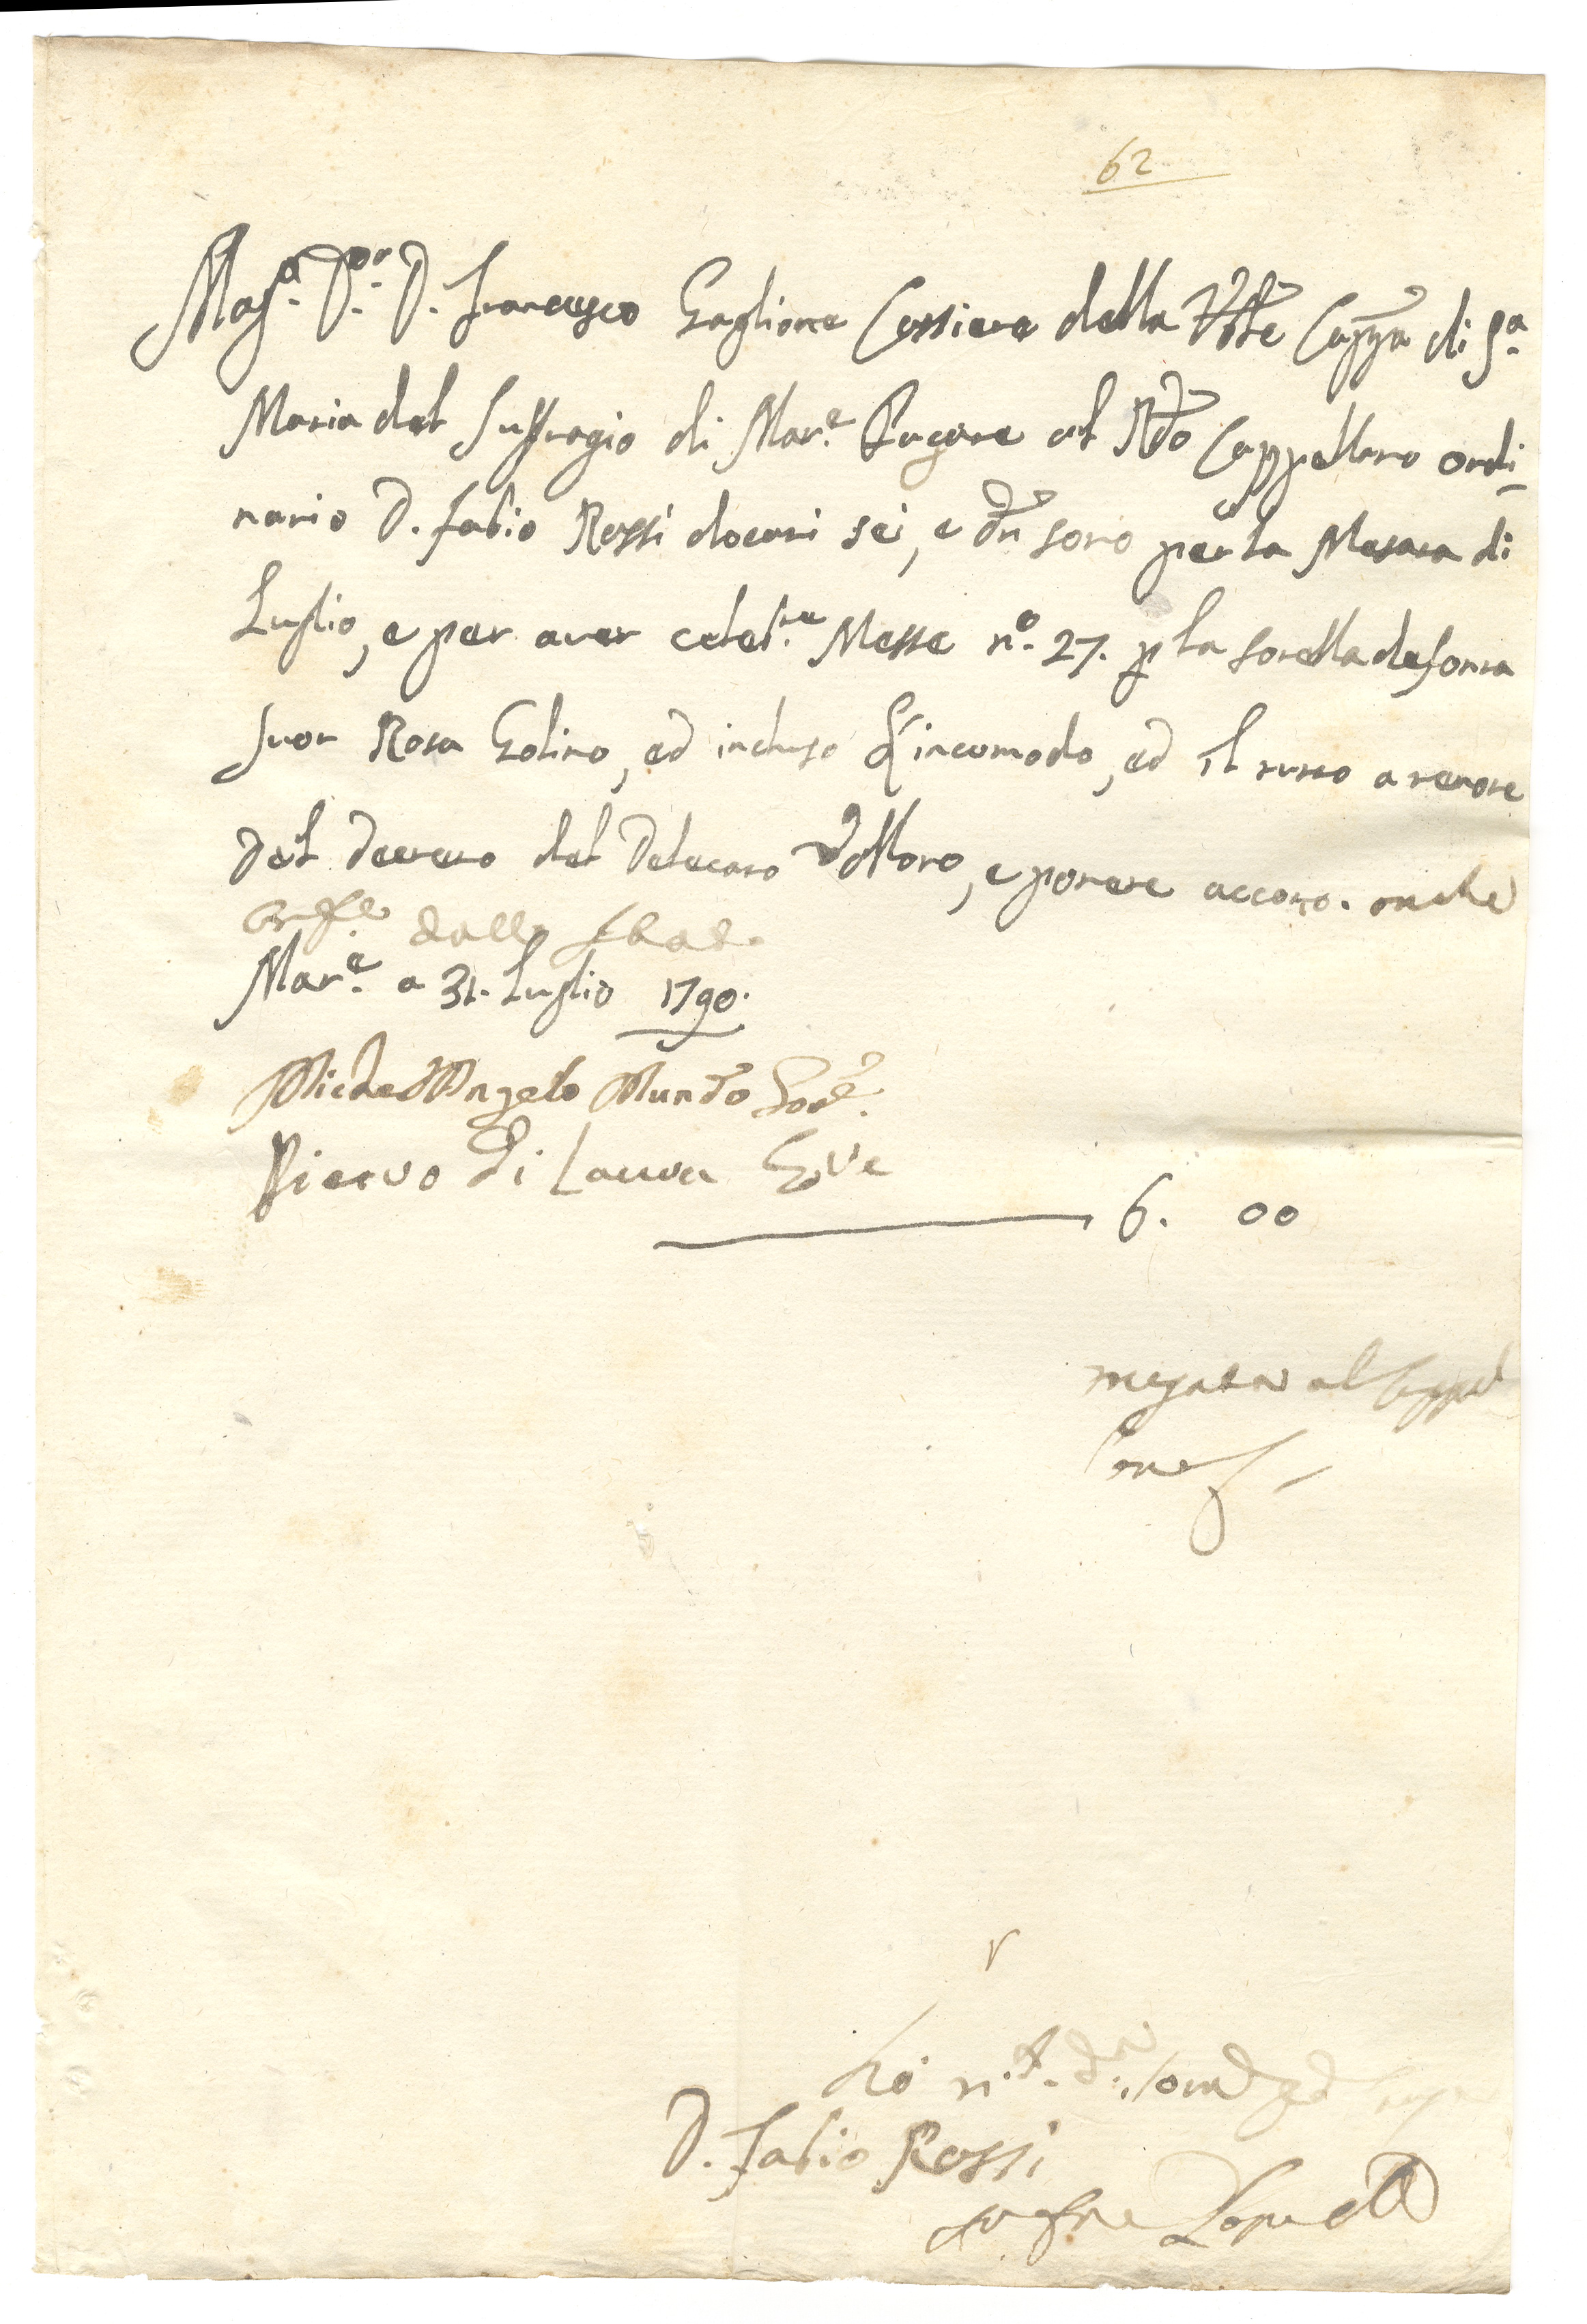 62
Mag.co D.r D. Francesco Gaglione Cassiere della Vble Cappa di S.a
Maria del Suffragio di Mar.e Pagate al Rdo Cappellano ordi-
nario D. Fabio Rossi docati sei, e dn sono per la Mesata di
Luglio, e per aver celeb.te Messe n.o 27. p la sorella defonta
Suor Rosa Golino, ed incluso l'incomodo, ed il tutto a tenore
del decreto del Delecato Vollaro, e ponete acconto. anche
dalle
Mar.e a 31. Luglio 1790.
Michel'Angelo Mundo Gov.e
Pietro di Laura Gove
6. 00
mesata al Cappel
D. Fabio Rossi